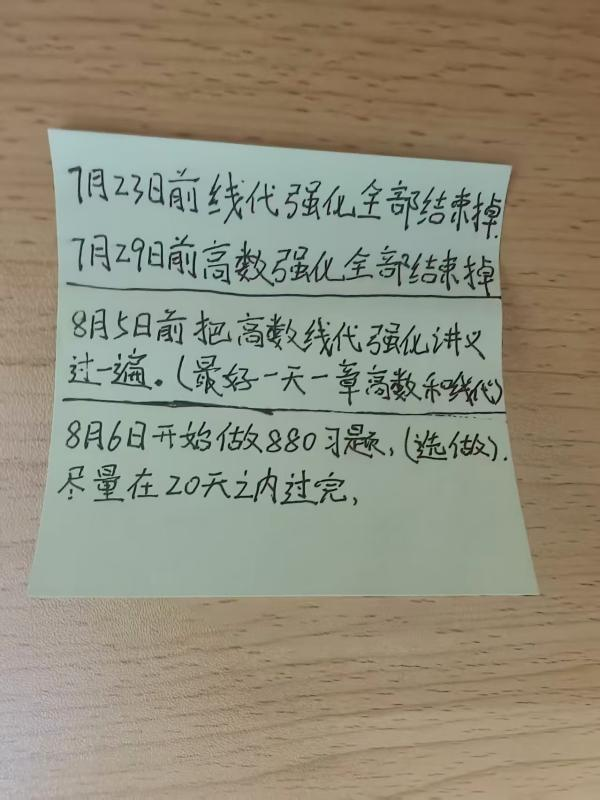 7月23日前线代强化全部结束掉.
7月29日前高数强化全部结束掉
8月5日前把高数线代强化讲义
过一遍。(最好一天一章高数和线代)
8月6日开始做880习题,(选做).
尽量在20天之内过完,